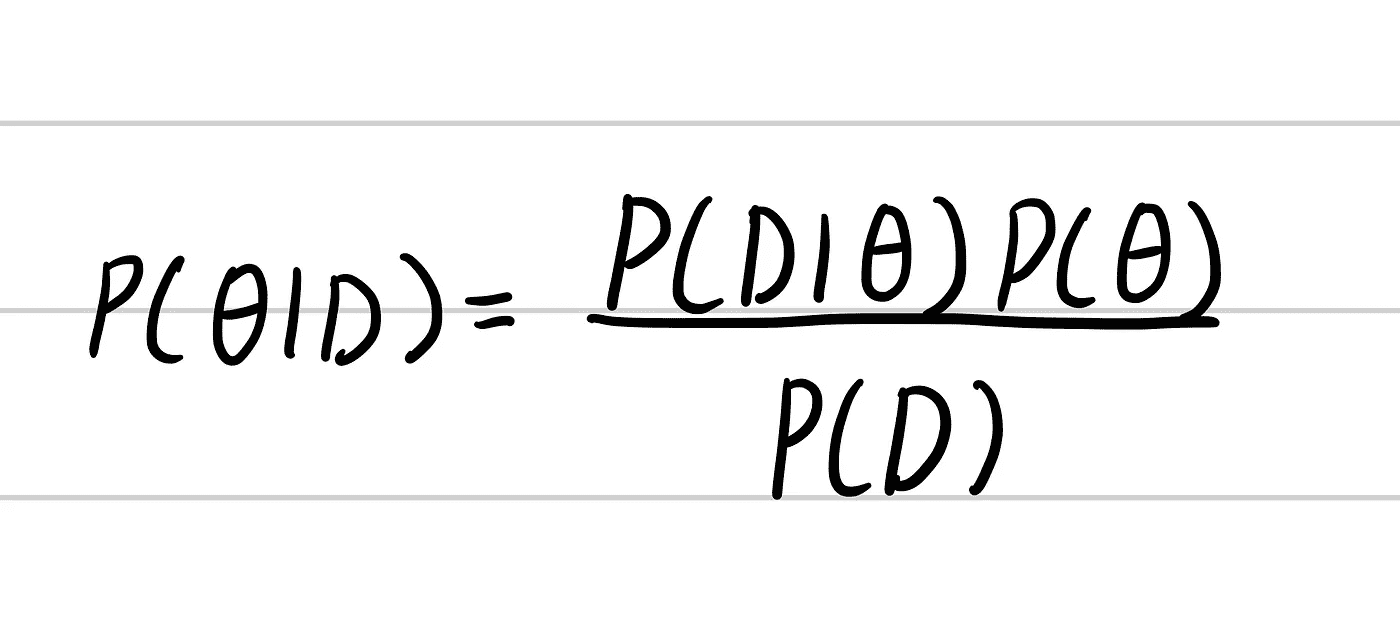 P(θ|D) = P(D|θ)P(θ)
P(D)